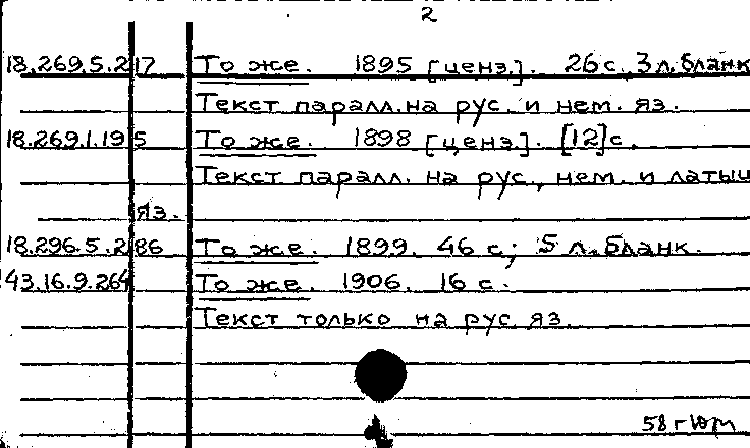 2
18.269.5.217 То же. 1895 [ценз.]. 26 с., 3 л. бланк
Текст паралл. на рус. и нем. яз.
18.269.1.195 То же. 1898 [ценз.]. [12] с.
Текст паралл. на рус., нем. и латыш
яз.
18.296.5.286 То же. 1899. 46 с; 5 л. бланк.
43.16.9.264 То же. 1906. 16 с.
Текст только на рус. яз.
58 г